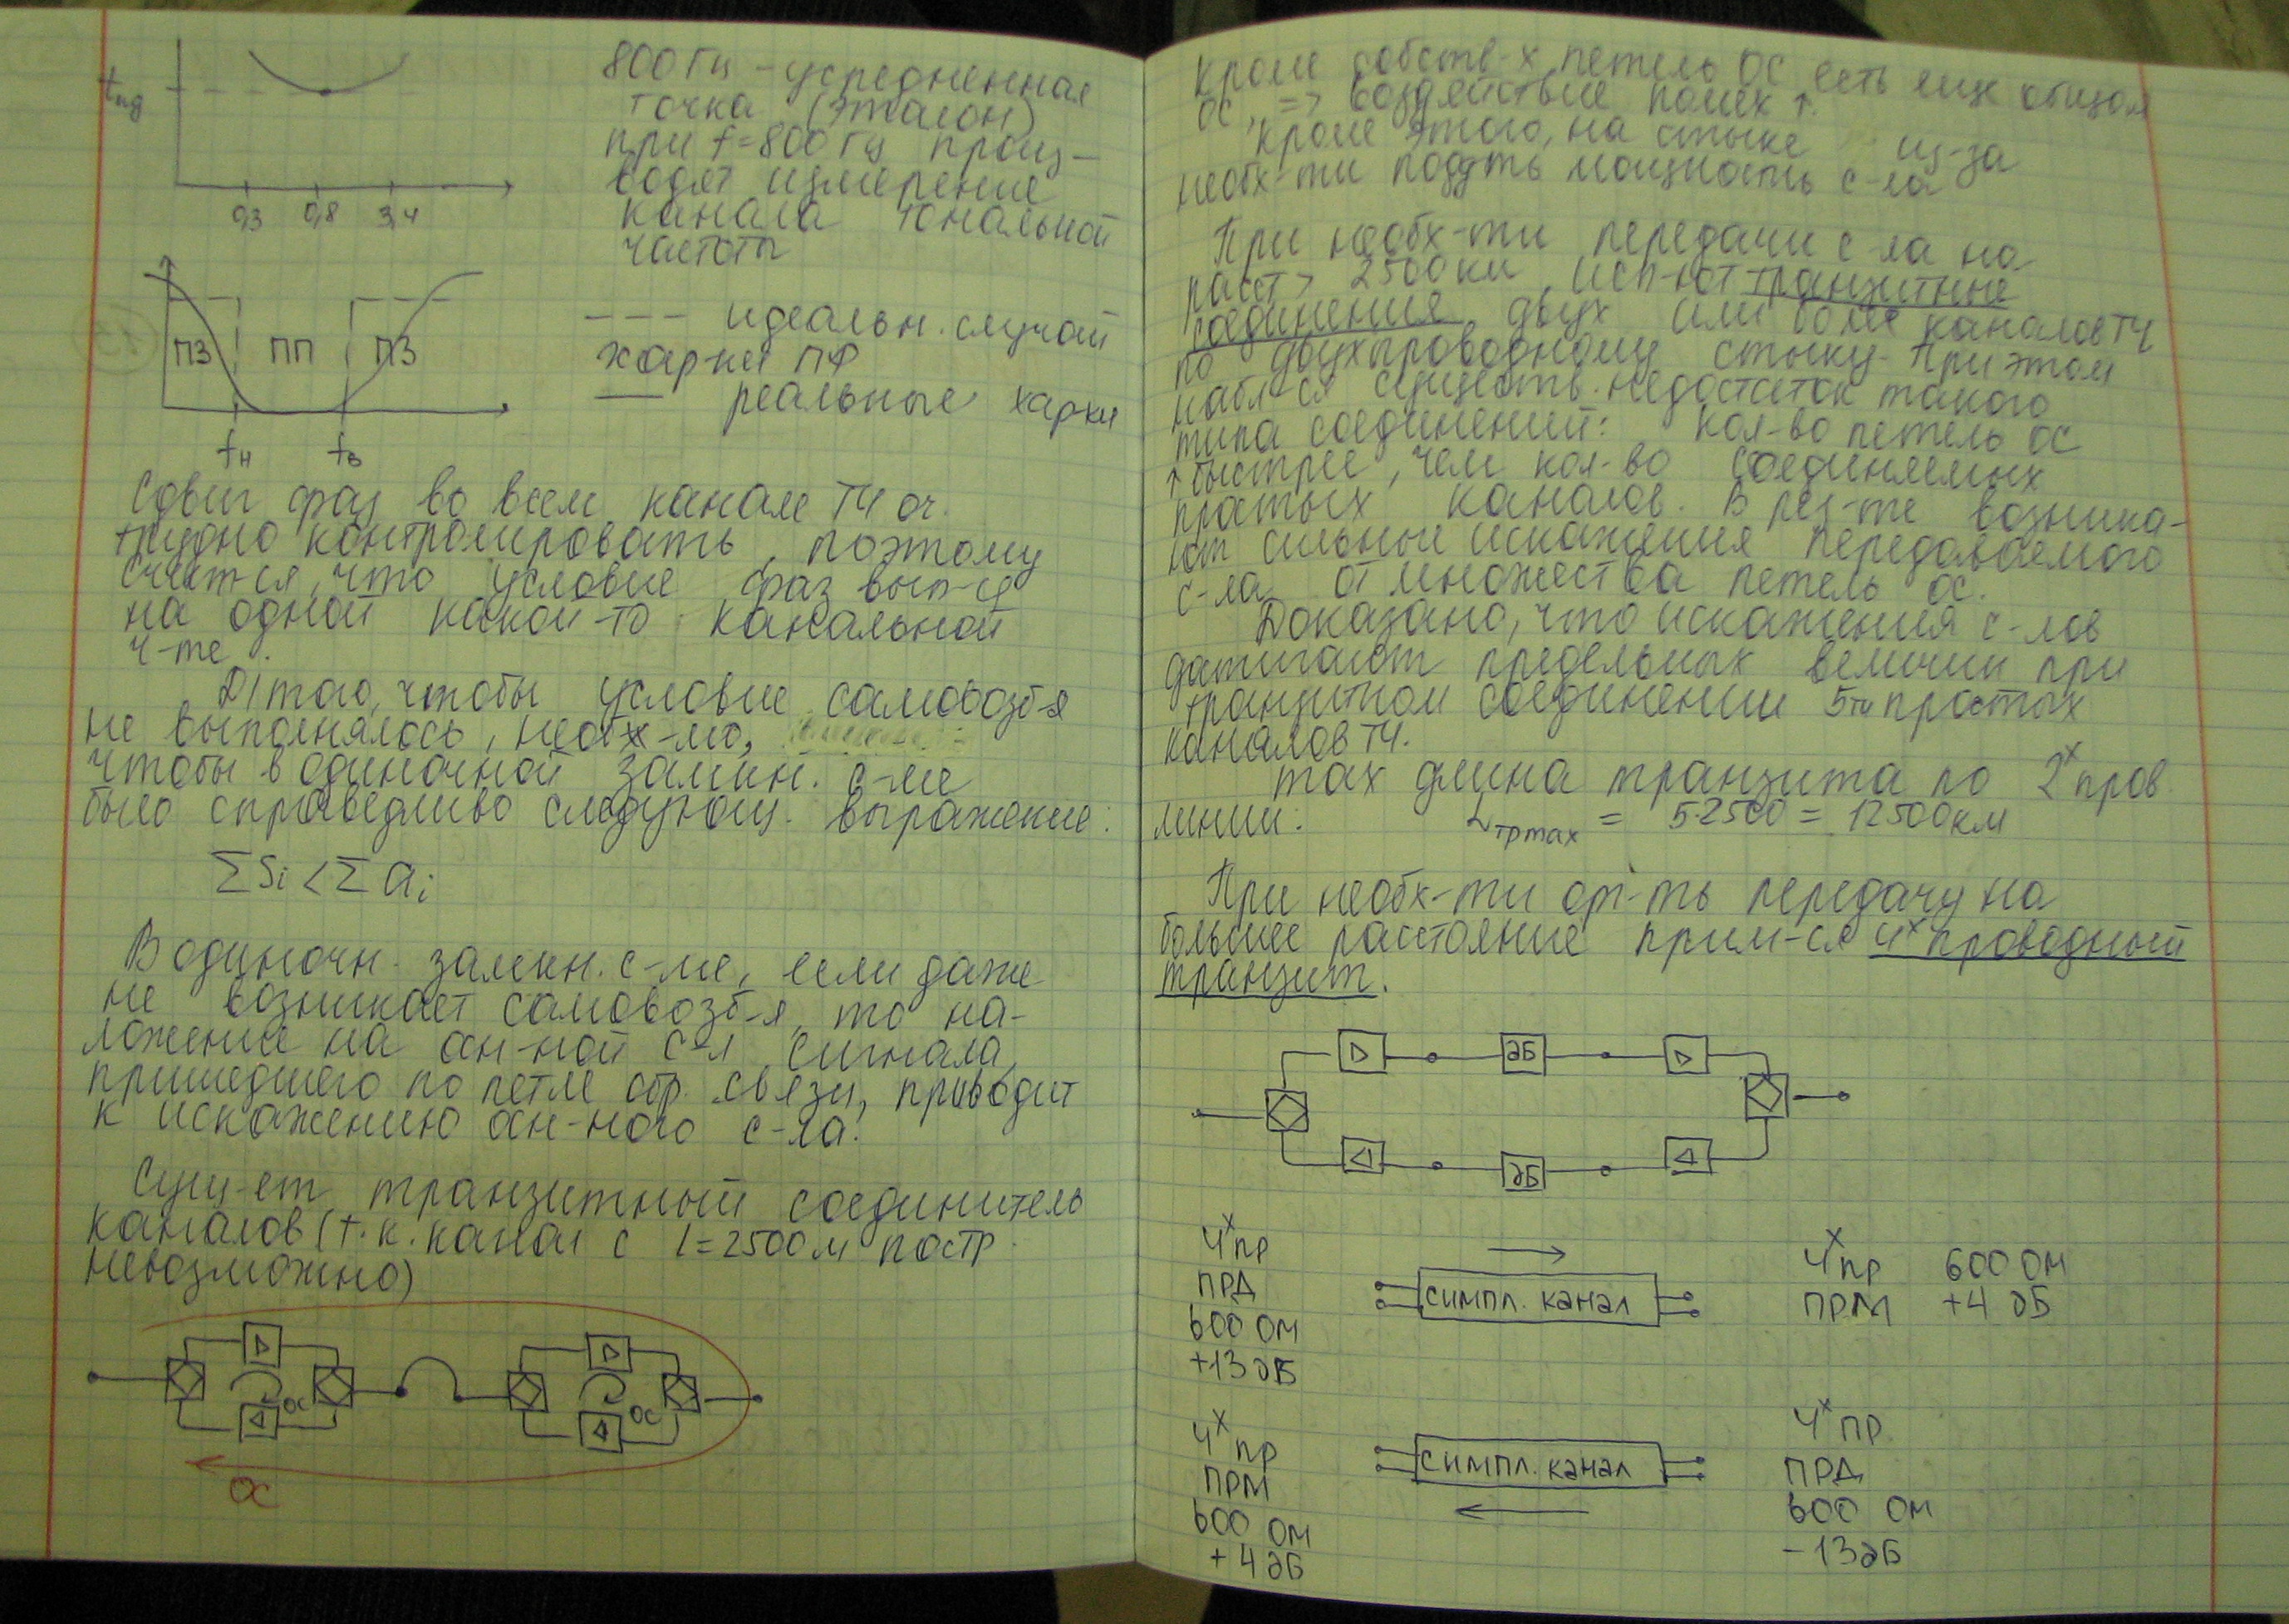 tпд
0,3 0,8 3,4
800 Гц – усредненная
точка (эталон)
при f=800 Гц произ–
водят измерение
канала тональной
частоты
ПЗ ПП ПЗ
fн fв
--- идеальн. случай
хар-ки ПФ
— реальные хар-ки
Сдвиг фаз во всем канале ТЧ оч.
трудно контролировать, поэтому
считается, что условие фаз вып-ся
на одной какой-то канальной
ч-те.
Д/того, чтобы условие самовозб-я
не выполнялось, необх-мо,
чтобы в одиночной замкн. с-ме
было справедливо следующ. выражение:
∑Si < ∑ai
В одиночн. замкн. с-ме, если даже
не возникает самовозб-я, то на-
ложение на осн-ной с-л сигнала,
пришедшего по петле обр. связи, приводит
к искажению осн-ного с-ла.
Сущ-ет транзитный соединитель
каналов (т.к. канал с l=2500м постр.
невозможно)
ос ос
ос
Кроме собств-х петель ОС есть еще общая
ОС, => воздействие помех ↑.
Кроме этого, на стыке из-за
необх-ти мощность с-ла
При необх-ти передачи с-ла на
расст > 2500 км, исп-ют транзитные
соединения двух или более каналов ТЧ
по двухпроводному стыку. При этом
набл-ся существ. недостаток такого
типа соединений: кол-во петель ОС
↑ быстрее, чем кол-во соединяемых
простых каналов. В рез-те возника-
ют сильные искажения передаваемого
с-ла от множества петель ОС.
Доказано, что искажения с-лов
достигают предельных величин при
транзитном соединении 5ти простых
каналов ТЧ.
max длина транзита по 2х пров.
линии: Lтрmax = 5·2500 = 12500км
При необх-ти орг-ть передачу на
большее расстояние прим-ся 4х проводный
транзит.
дБ
дБ
4х пр
ПРД
600 Ом
+13 дБ
симпл. канал
4х пр 600 Ом
ПРМ +4 дБ
4х пр
ПРМ
600 Ом
+4 дБ
симпл. канал
4х ПР
ПРД
600 Ом
-13 дБ